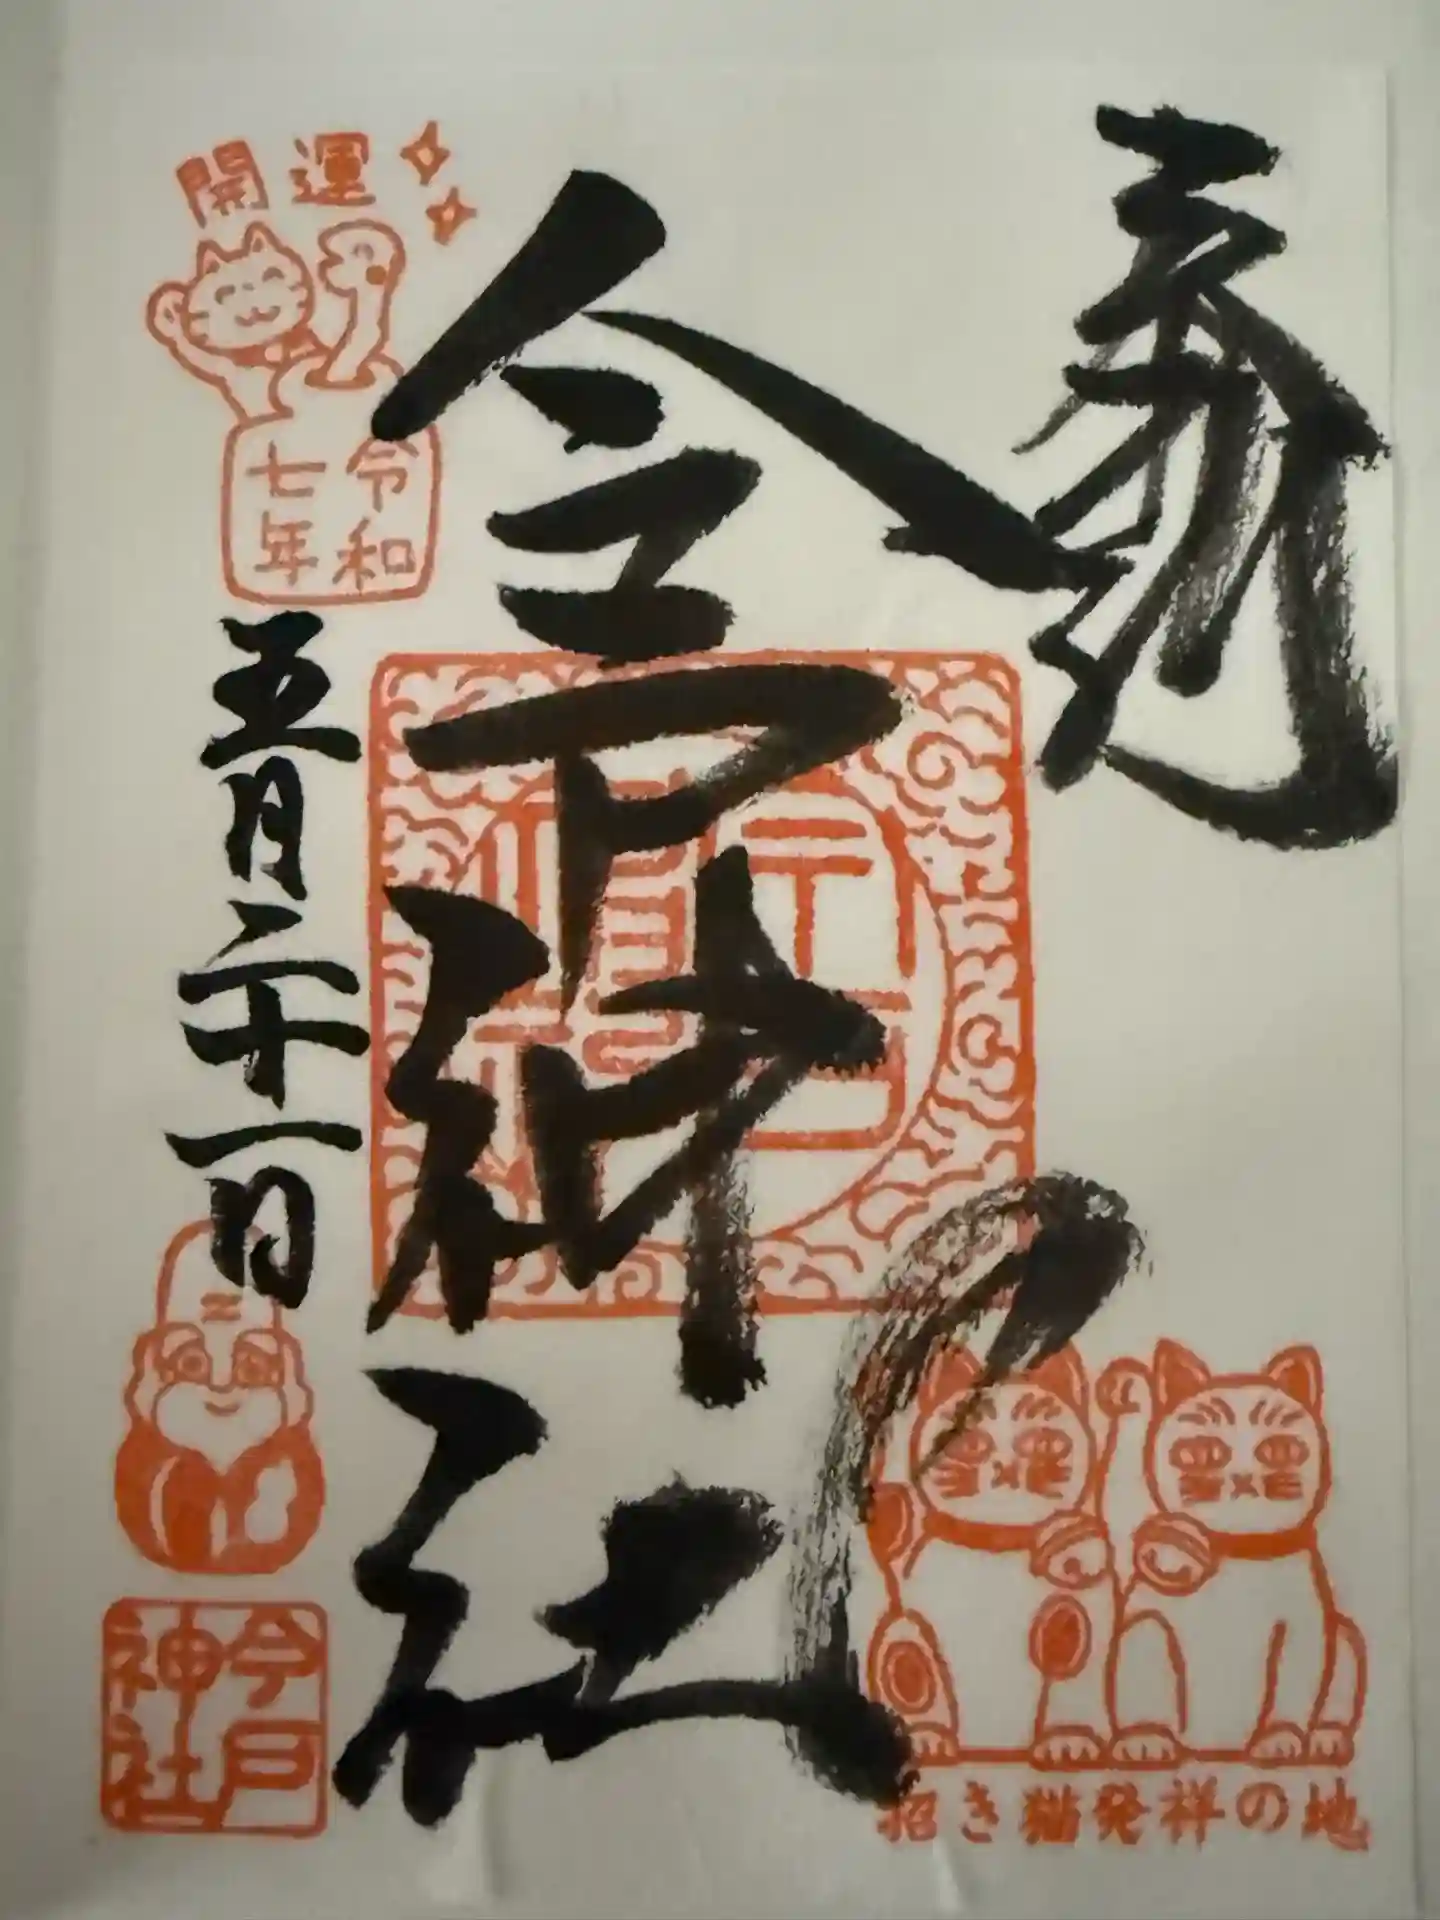 開運
令和
七年
五月二十一日
今戸神社
今戸
神社
招き猫発祥の地